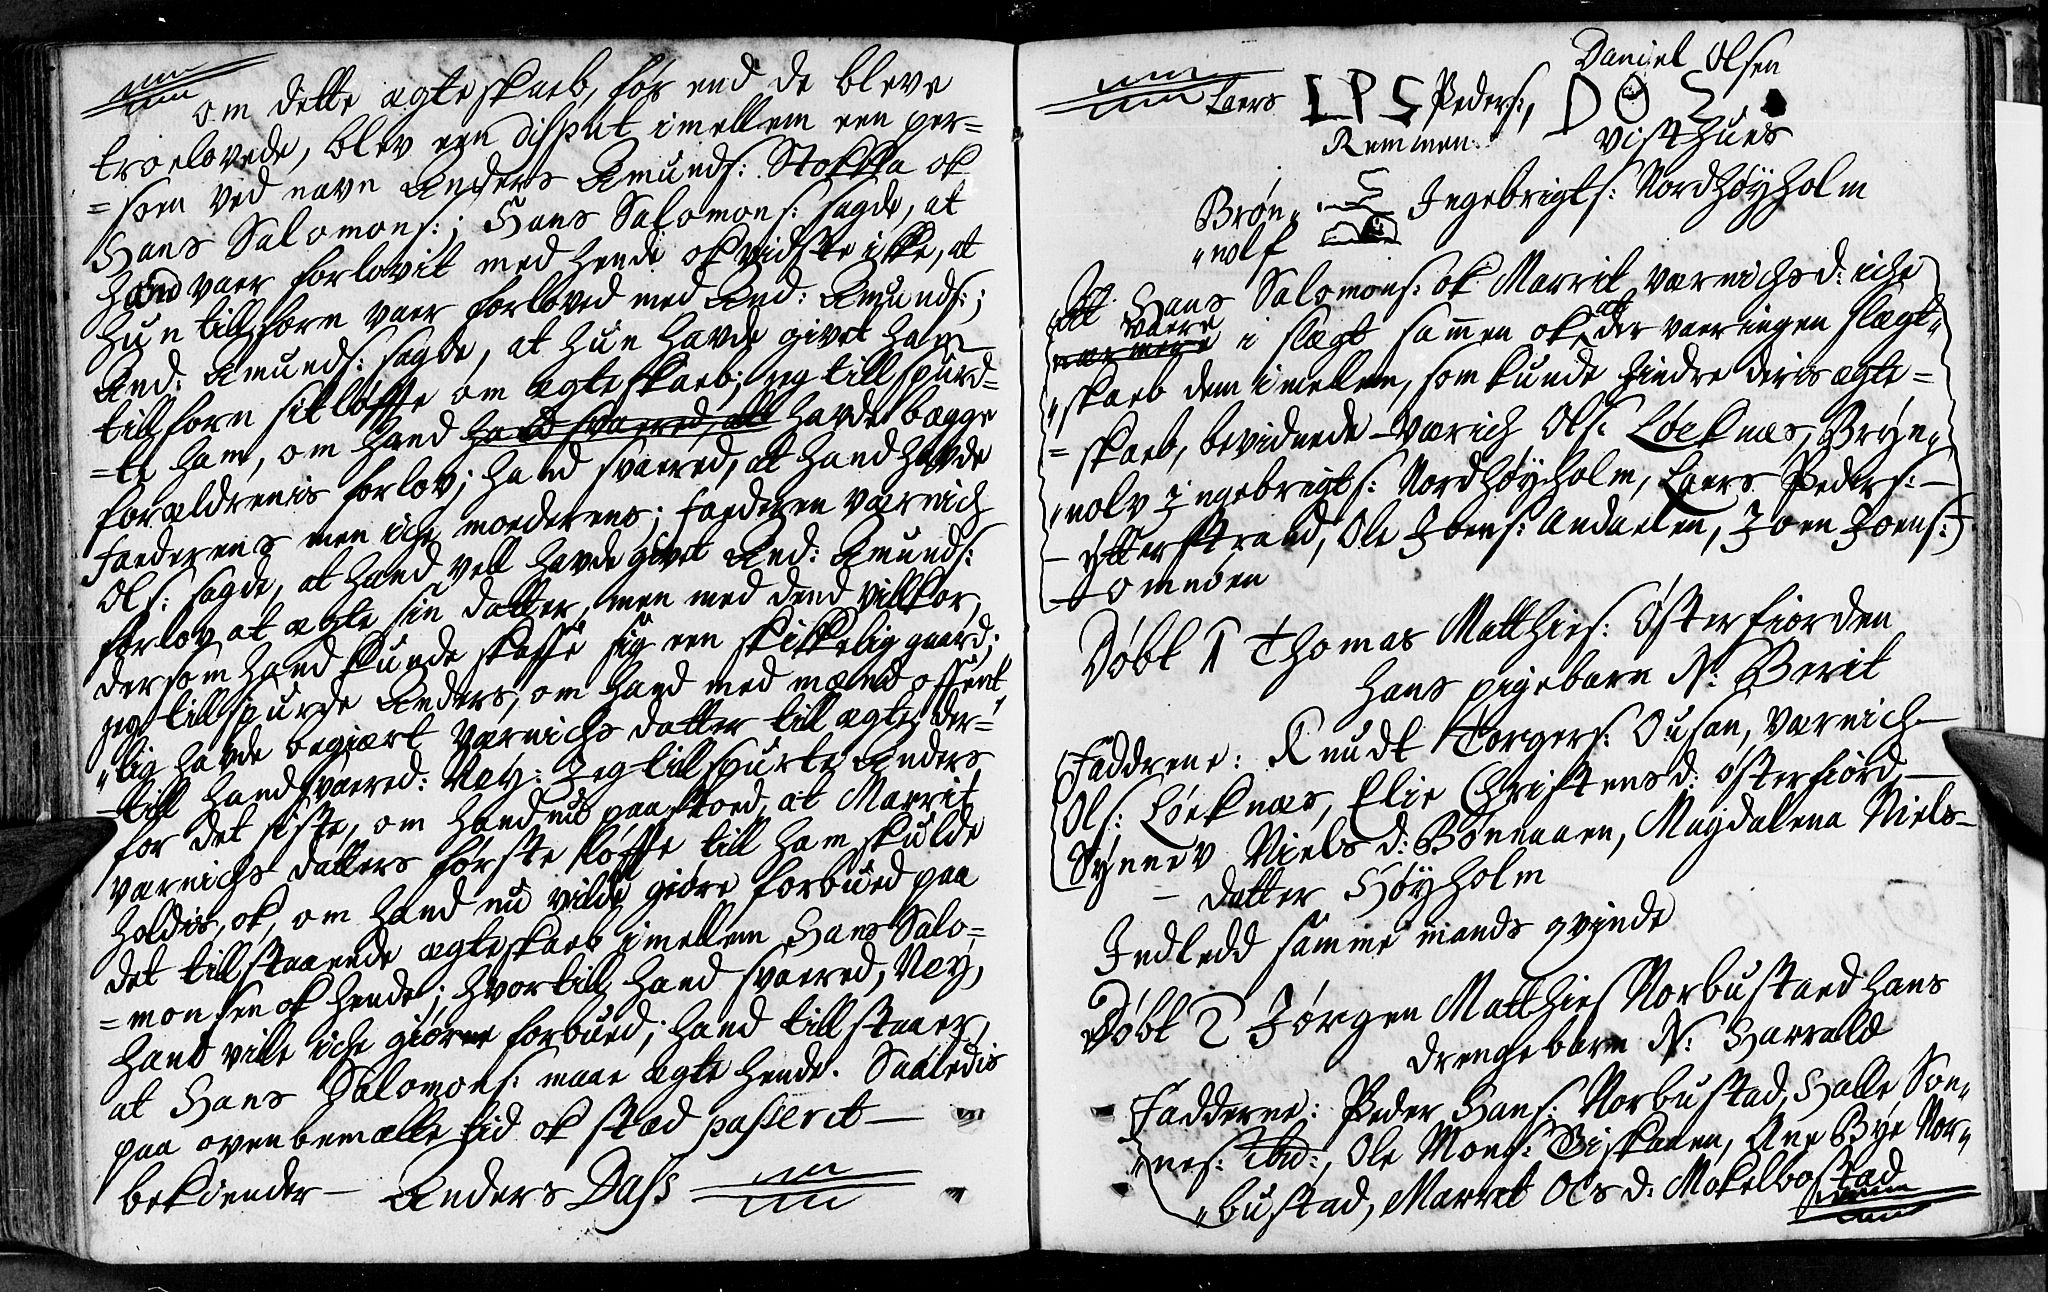 om dette ægteskaeb, før end de bleve
troelovede, blev een disput imellem een per=
=soen ved navn Anders Amunds: Stokka ok
Hans Salomons:; Hans Salomons: sagde, at
hand vaer forlovit med hende ok vidste ikke, at
hun tillforn vaer forloved med And: Amunds:;
And: Amunds: sagde, at hun havde givet ham
tillforn sit løffte om ægteskaeb; jeg tillspurd=
=te ham, om hand hand svaered, att havde bægge
forældrenis forlov; hand svaered, at hand havde
faederens men iche moederens; faederen Værnich
Ols: sagde, at hand vell havde givet And: Amunds:
forlov at ægte sin datter, men med dend villkor,
dersom hand kunde skaffe sig een skikkelig gaard;
jeg tillspurde Anders, om hand med mænd offent„
„lig havde begiært Værnichs datter till ægte; der=
-till hand svaered: Ney: Jeg tillspurte Anders
for det siste, om hand nu paastoed, at Marrit
Værnichs datters første løffte till ham skulde
holdis, ok, om hand nu vilde giøre forbued paa
det tillstaaende ægteskaeb imellem Hans Salo=
=monsen ok hende; hvortill hand svaered, Ney,
hand ville iche giøre forbued; hand tillstaaer,
at Hans Salomons: maae ægte hende. Saaledis
paa ovenbemælte tid ok stæd passerit —
bekiender — Anders Dass
Daniel Olsen
Laers LPS Peders:, DOS
Remmen: Visthues
Brøn„ Ingebrigts: Nordhøyholm
„wlf
At Hans Salomons: ok Marrit Værnichsd: iche
vaere i slægt sammen ok at der vaer ingen slægt„
„skaeb dem imellem, som kunde hindre deris ægte=
=skaeb, bevidnede Værich Ols: Løcknæs, Bryn„
„nolv Ingebrigts: Nordhøyholm, Laers Peders: —
— Ytterstrand, Ole Joens: Andaelen, Joen Joens:
— omnoen
Døbt 1 Thomas Matthies: Østerfiorden
hans pigebarn N: Berit
Faddrene: Knudt Torgers: Ousan, Værnich
Ols: Løcknæs, Elie Christensd: Østerfiord, —
Synnev Nielsd: Bønaaen, Magdalena Niels—
— datter Høyholm
Indledd samme mands qvinde
Døbt 2 Jørgen Matthies Norbustaed hans
drengebarn N: Harrald
Fadderne: Peder Hans: Norbustad, Halle Søn„
„nes: ibid:, Ole Mons: Biskaaen, Ane Bye Nor„
„bustad, Marrit Olsd: Mokelbostad